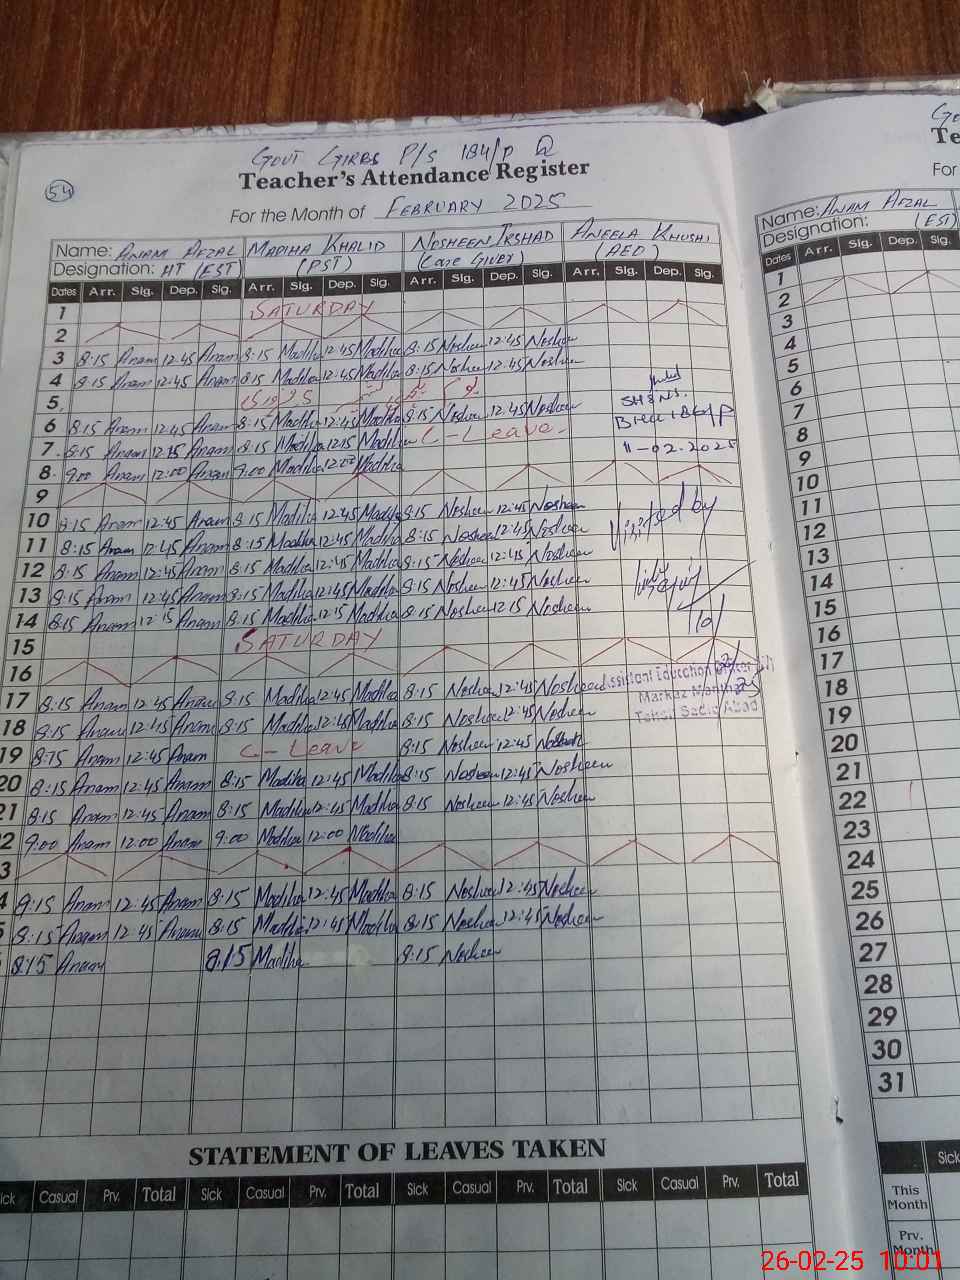 GOVT GIRLS P/S 184/P
54
Teacher's Attendance Register
For the Month of FEBRUARY 2025
Name: ANAM AFZAL MADIHA KHALID NOSHEEN IRSHAD ANEELA KHUSHI
Designation: HT (EST) (PST) (Care Giver) (AEO)
Dates Arr. Sig. Dep. Sig. Arr. Sig. Dep. Sig. Arr. Sig. Dep. Sig. Arr. Sig. Dep. Sig.
1 SATURDAY
2
3 8:15 Anam 12:45 Anam 8:15 Madiha 12:45 Madiha 8:15 Nosheen 12:45 Nosheen
4 8:15 Anam 12:45 Anam 8:15 Madiha 12:45 Madiha 8:15 Nosheen 12:45 Nosheen
5
6 8:15 Anam 12:45 Anam 8:15 Madiha 12:45 Madiha 8:15 Nosheen 12:45 Nosheen
7 8:15 Anam 12:15 Anam 8:15 Madiha 12:15 Madiha C-Leave
11-02-2025
8 9:00 Anam 12:00 Anam 9:00 Madiha 12:00 Madiha
9
10 8:15 Anam 12:45 Anam 8:15 Madiha 12:45 Madiha 8:15 Nosheen 12:45 Nosheen
Visited by
11 8:15 Anam 12:45 Anam 8:15 Madiha 12:45 Madiha 8:15 Nosheen 12:45 Nosheen
12 8:15 Anam 12:45 Anam 8:15 Madiha 12:45 Madiha 8:15 Nosheen 12:45 Nosheen
13 8:15 Anam 12:45 Anam 8:15 Madiha 12:45 Madiha 8:15 Nosheen 12:45 Nosheen
14 8:15 Anam 12:15 Anam 8:15 Madiha 12:15 Madiha 8:15 Nosheen 12:15 Nosheen
15 SATURDAY
16
Assistant Education Officer
Markaz
Tehsil Sadiq Abad
17 8:15 Anam 12:45 Anam 8:15 Madiha 12:45 Madiha 8:15 Nosheen 12:45 Nosheen
18 8:15 Anam 12:45 Anam 8:15 Madiha 12:45 Madiha 8:15 Nosheen 12:45 Nosheen
19 8:15 Anam 12:45 Anam C-Leave 8:15 Nosheen 12:45 Nosheen
20 8:15 Anam 12:45 Anam 8:15 Madiha 12:45 Madiha 8:15 Nosheen 12:45 Nosheen
21 8:15 Anam 12:45 Anam 8:15 Madiha 12:45 Madiha 8:15 Nosheen 12:45 Nosheen
2 9:00 Anam 12:00 Anam 9:00 Madiha 12:00 Madiha
3
4 8:15 Anam 12:45 Anam 8:15 Madiha 12:45 Madiha 8:15 Nosheen 12:45 Nosheen
8:15 Anam 12:45 Anam 8:15 Madiha 12:45 Madiha 8:15 Nosheen 12:45 Nosheen
8:15 Anam 8:15 Madiha 8:15 Nosheen
STATEMENT OF LEAVES TAKEN
Sick Casual Prv. Total Sick Casual Prv. Total Sick Casual Prv. Total Sick Casual Prv. Total
Go
Te
For
Name: ANAM AFZAL
Designation: (EST)
Dates Arr. Sig. Dep. S
1
2
3
4
5
6
7
8
9
10
11
12
13
14
15
16
17
18
19
20
21
22
23
24
25
26
27
28
29
30
31
Sick
This Month
Prv. Month
26-02-25 10:01